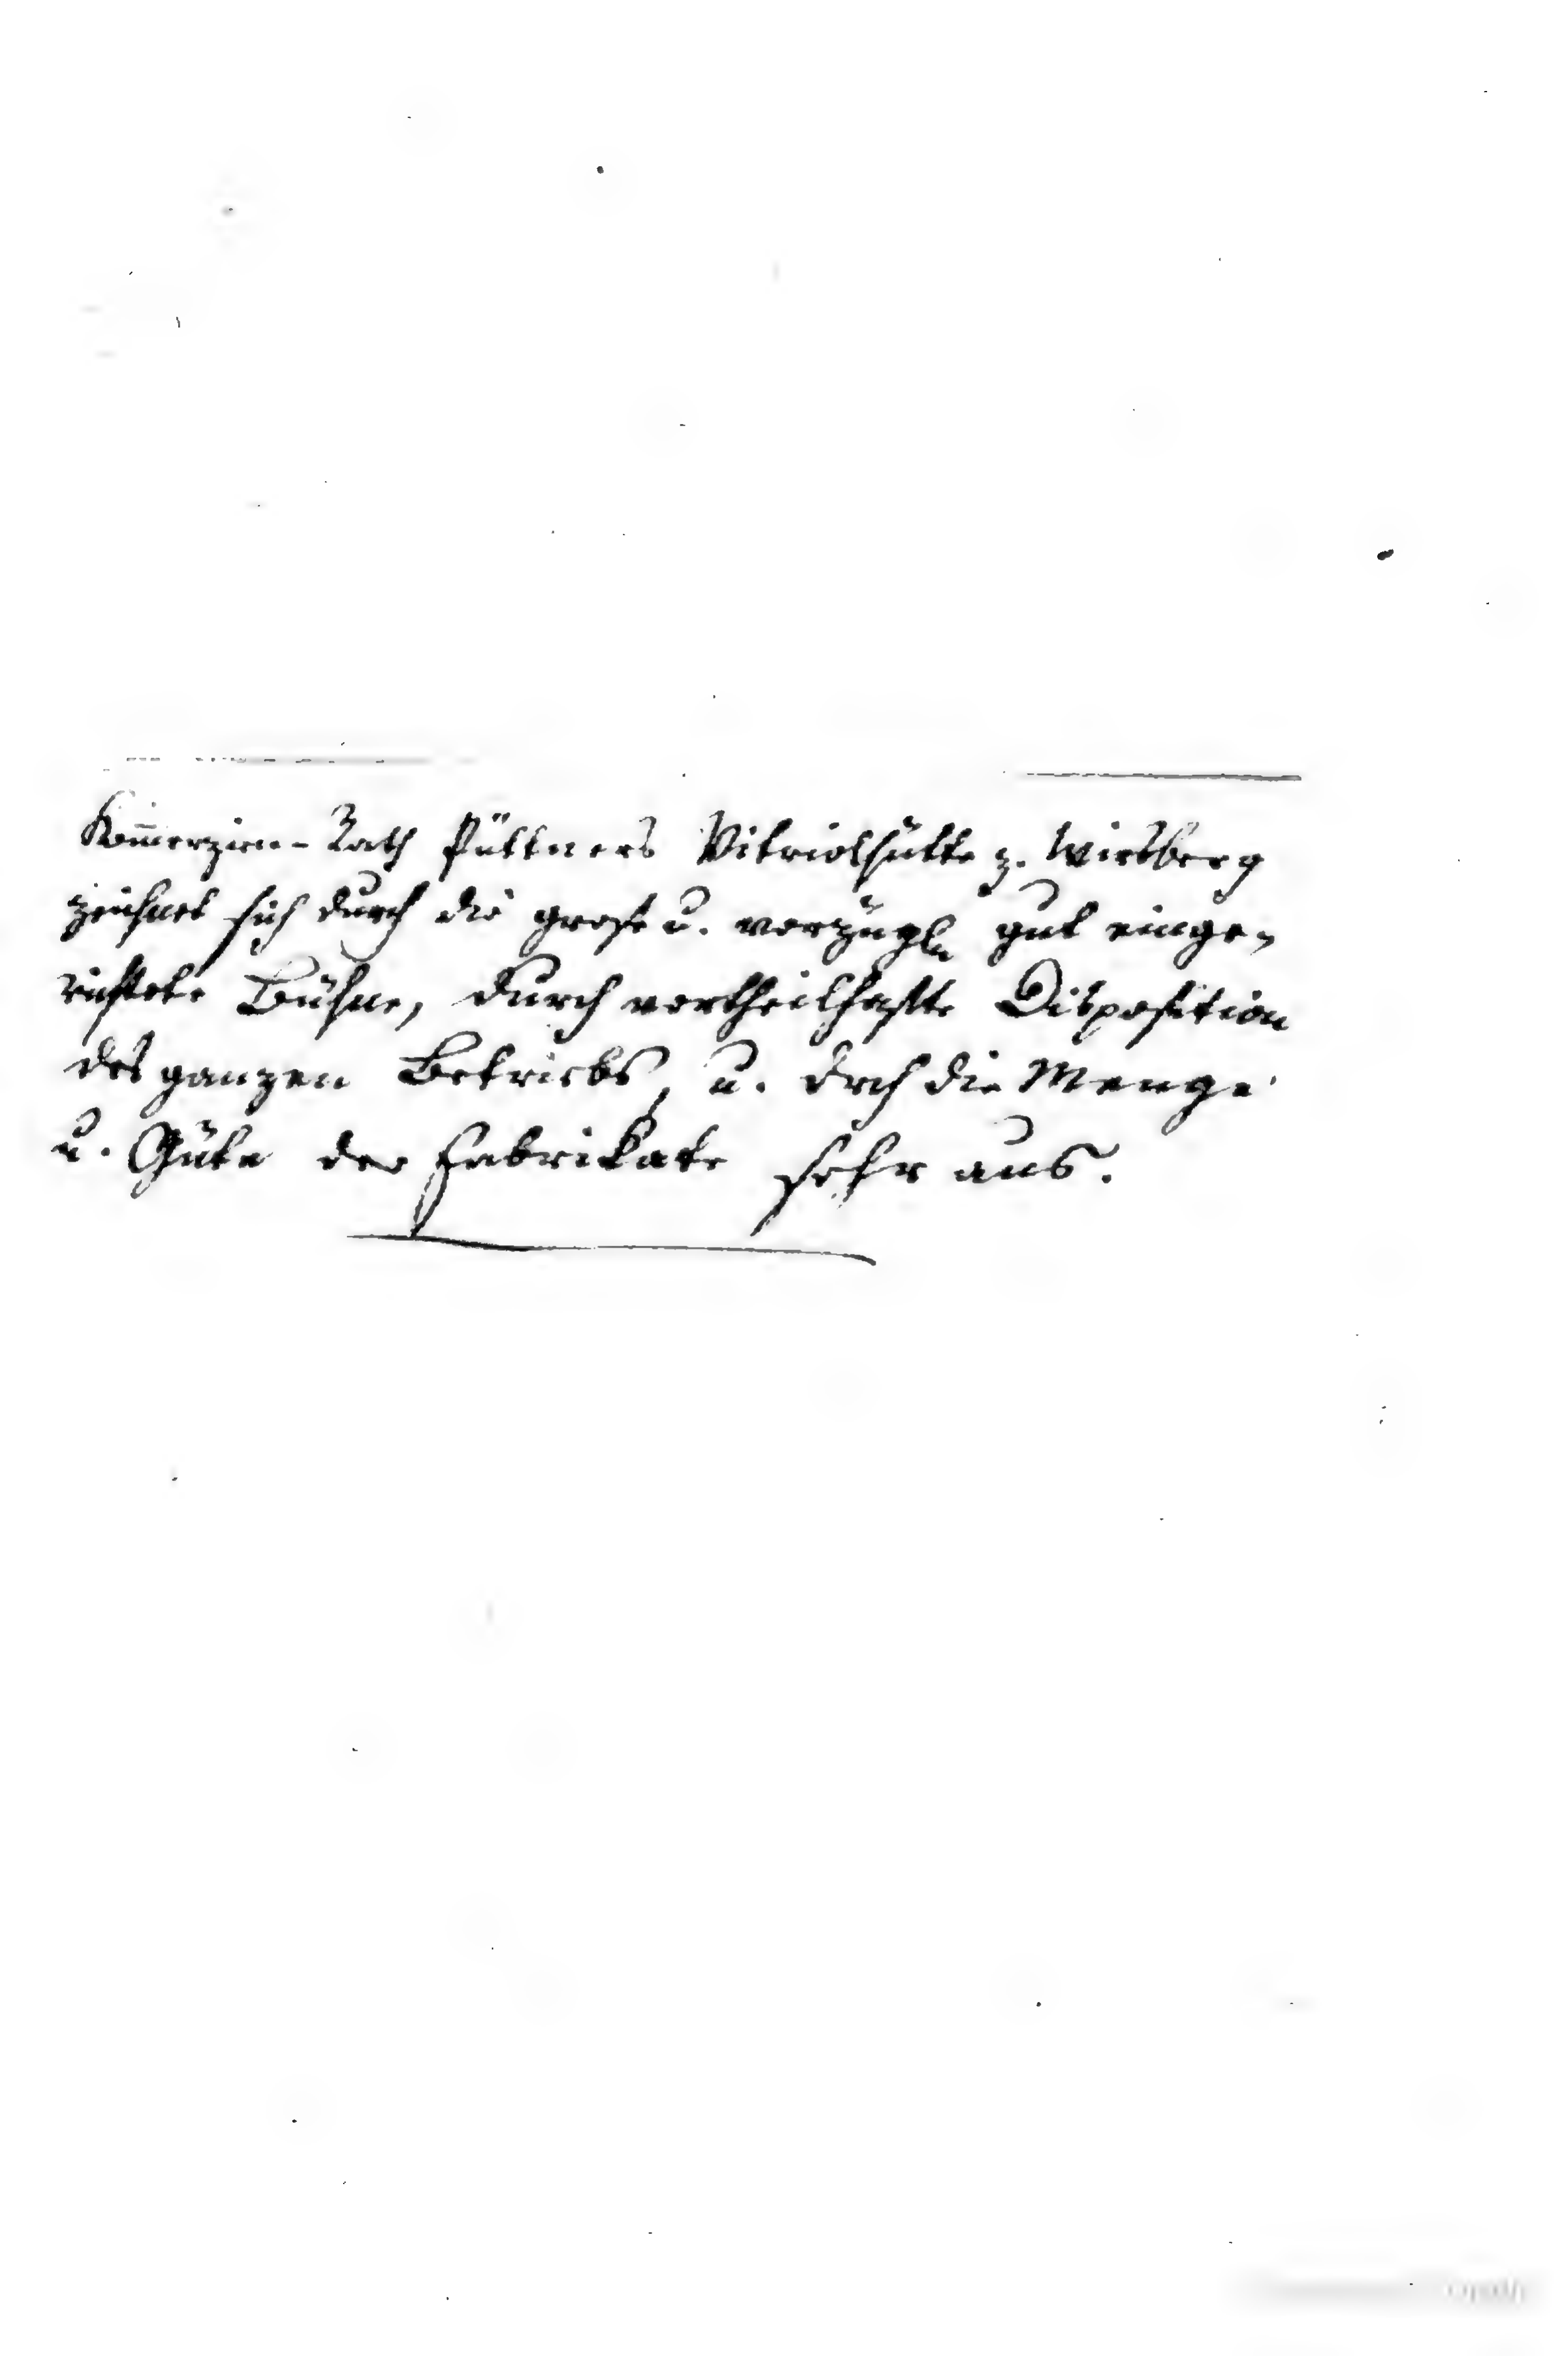 Kom̅erzien-Rath Püttners Vitriolhütte z. Wirsberg
zeichnet sich durch die große u. vorzügl. gut einge-
richtete Bühne, durch vortheilhafte Disposition
des ganzen Betriebs, u. drch die Menge
u. Güte der Fabrikate sehr aus.